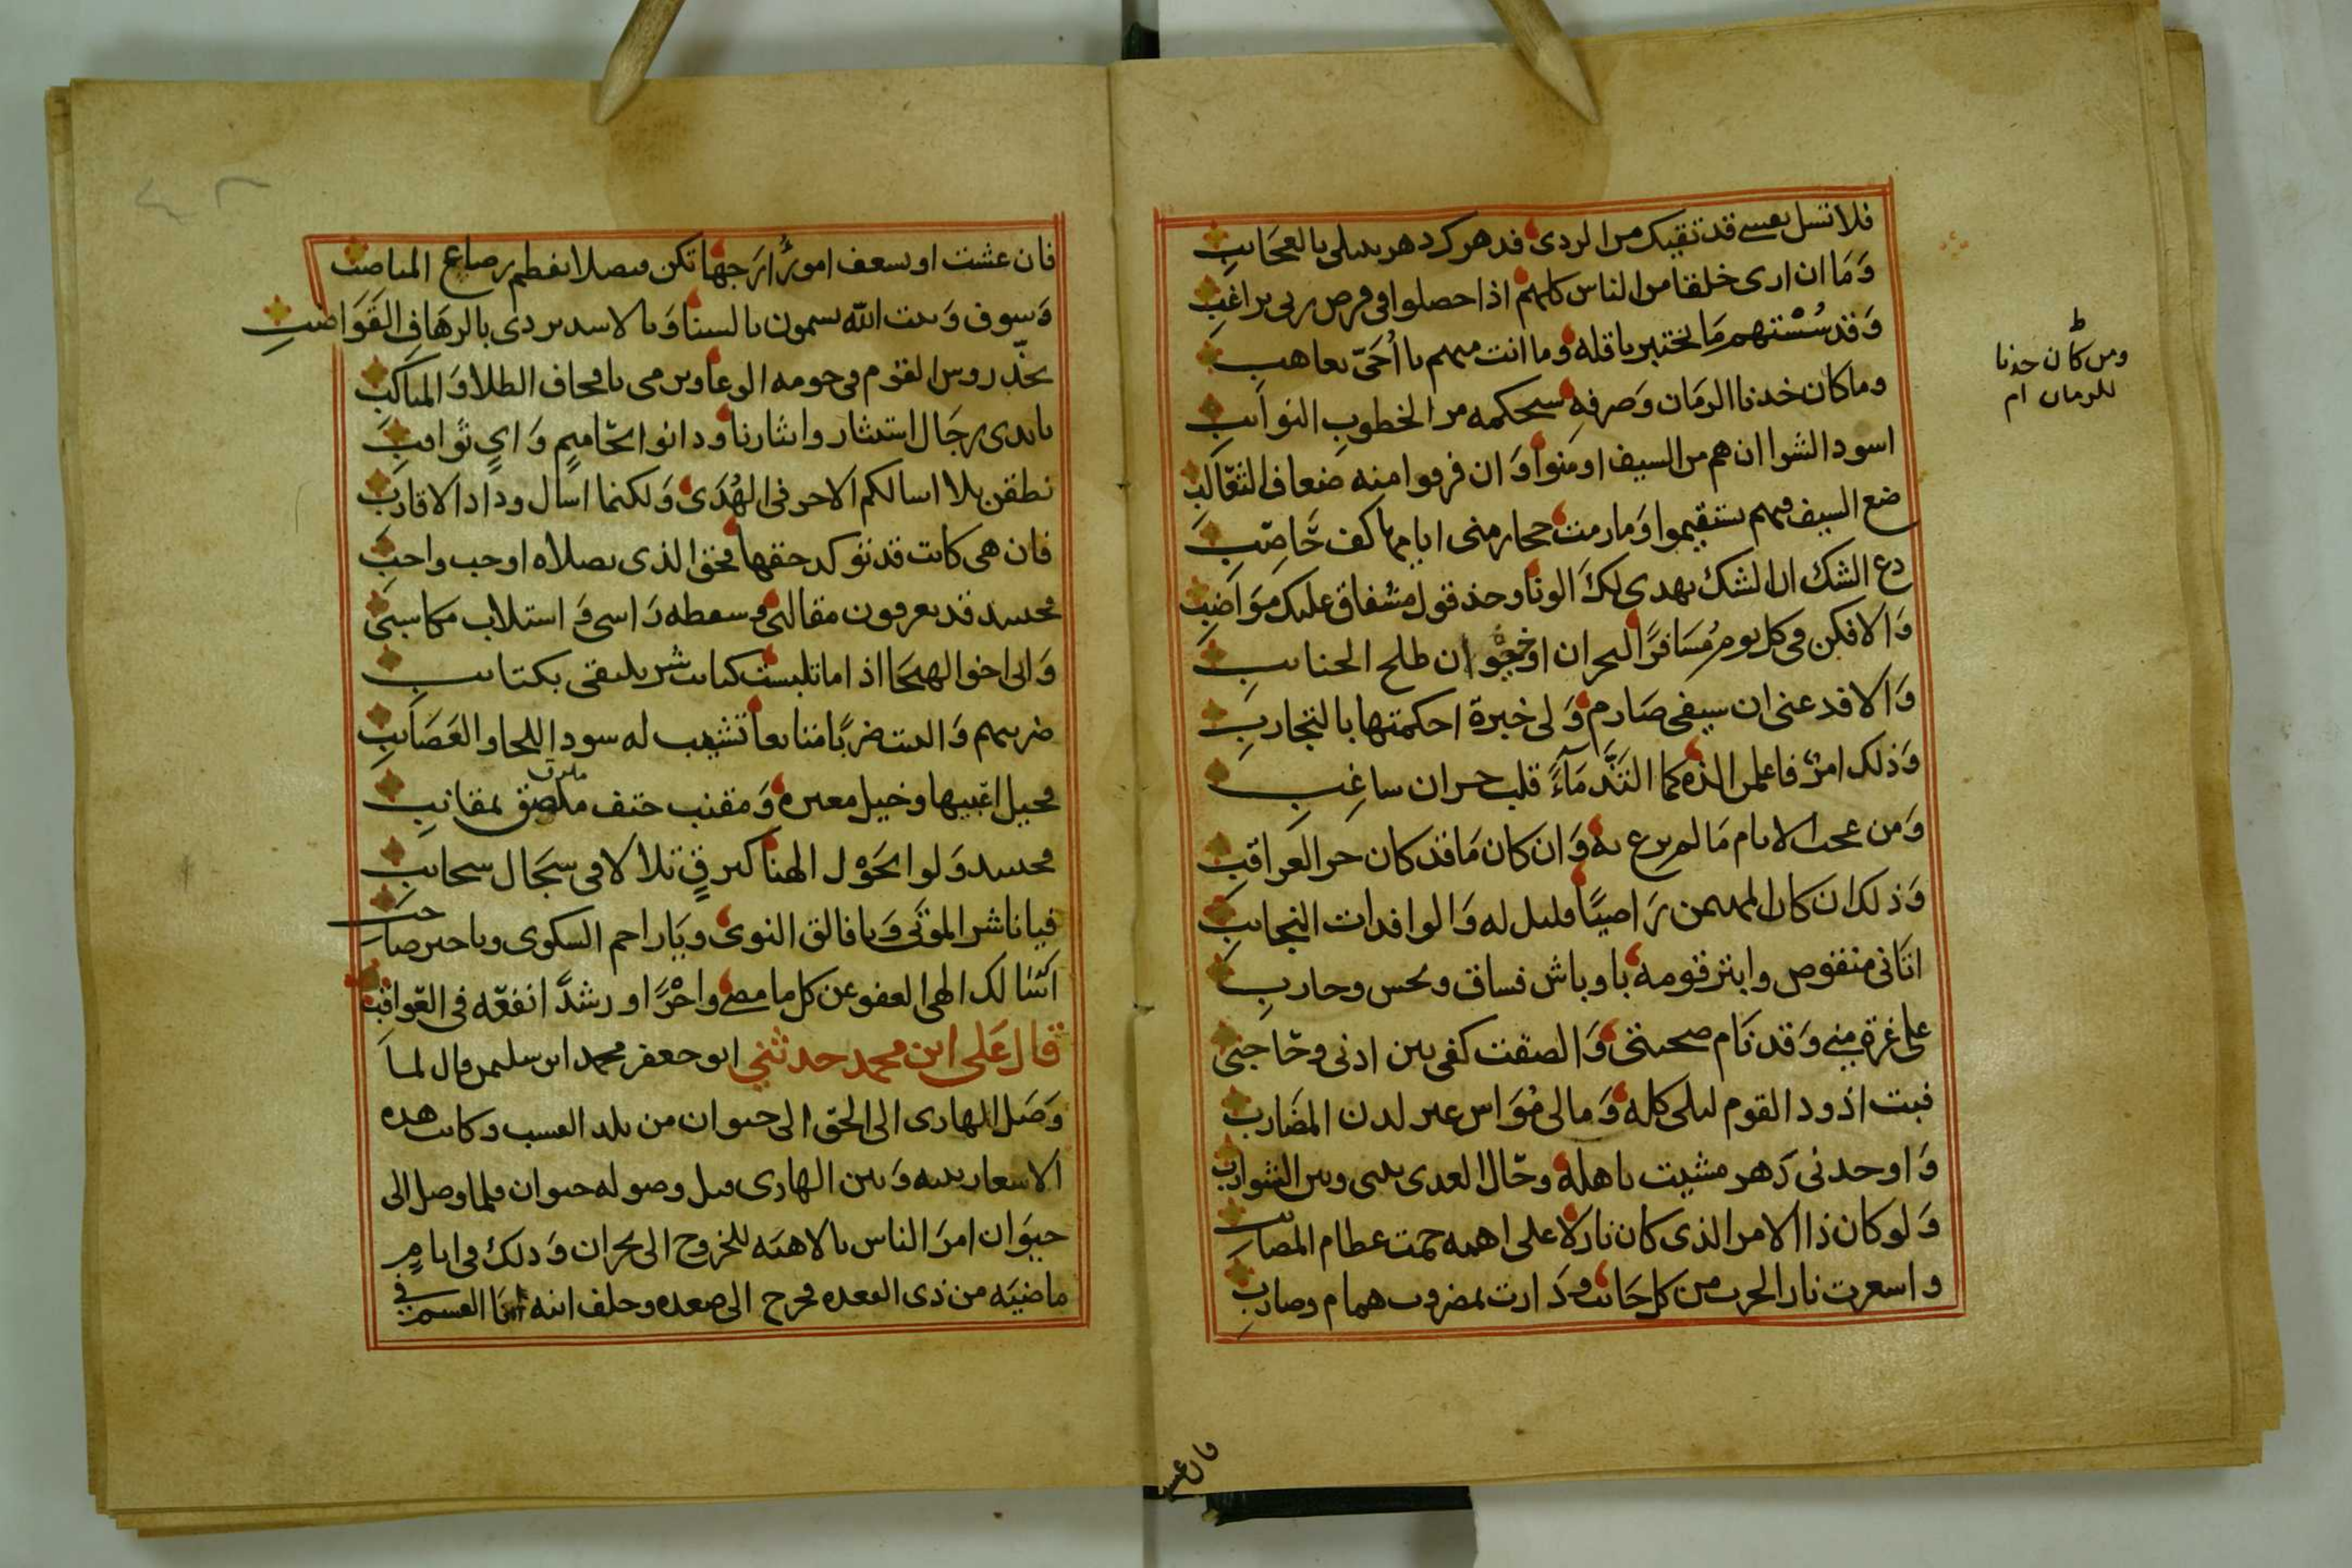 فلا تنسل نفسي قد تقيك من الردى فدهرك دهر يبتلى بالعجايب
وَمَا ان ارى خلقا من الناس كلهم اذا حصلوا في فرض ربي براغب
وَقد سُسْتهم مَا نختبر باقله وما انت منهم يا أُخَىّ بعاهب
وما كان خدنا الزمان وَصرفه سيحكمه مر الخطوبِ النوايب
ط
ومن كان خدنا
للزمان ام
اسود الشرا ان هم من السيف اومنوا وَان فرقوا منه ضعاف الثعالب
ضع السيف فيهم يستقيموا وَما رمت حجار منى ايامها كف حَاصب
دع الشك ان الشك يهدى لكَ الونا وخذ قول مشفاق عليك مَوَاضب
وَالا فكن في كل يوم مُسَافرًا لنجران او خيوان طلح الجنايب
وَالا فدعنى ان سيفى صَارم وَلى خبرة احكمتها بالتجارب
وَذلك امرٌ فاعلمن الذه كما التَذَّ مَآءً قلب حران ساغِب
وَمن عجب الايام مَا لم يرع به وَان كان مَا قد كان حر العراقب
وَذلك ان كان المهيمن رَاضيًا قليل له وَالوافدات النجايب
اتانى منقوص وابتر قومه باوباش فساق ونحس وحارب
على غرة مني وَقد نام صحبتى وَالصقت كفى بين اذنى وحَاجبى
فبت اذود القوم ليلى كله وَما لى مُوَاس غير لدن المضَارب
وَاوحدنى دَهر مشيت باهله وحَال العدى بينى وبين الشوارب
وَلو كان ذا الامر الذى كان نازلا على اهبه حمت عظام المصايب
واسعرت نار الحرب من كل جَانب ودَارت بمضروب همام وضارب
فان عس
فان عشت او يسعف امورٌ ارَجها تكن فيصلا يفطم رضاع المناصب
وَسوف وَبيت الله يسمون بالسنا وَبالاسد يردى بالرهَاف القَوَاضب
يحذّ روس القوم في حومه الوعا ويرمى بافحاف الطلا وَالمناكب
بايدى رجَال استثار واثارنا ودانوا بحَاميم وَاىٍ ثواقب
نطقن بلا اسالكم الاجر في الهُدَى وَلكنما اسال وداد الاقارب
فان هى كانت قد توكد حقها فحق الذى يصلاه اوجب واجب
محسد قد يعرفون مقالتى وسعطه رَاسى وَاستلاب مكاسبَى
وَانى اخو الهيجَا اذا ما تلبست كتايب شر يلتقى بكتايب
ضربهم وَالبيت ضربًا متتابعا تشيب له سود اللحا والعَصَايب
فخيل اغيبها وخيل مغيره وَمقنب حتف ملصق بمقانب
محسد وَلوا نحوْل الهنا كبرقٍ تلالا في سجَال سحايب
فيا ناشر الموتى وَيا فالق النوى ويَا راحم الشكوى ويا خير صاحب
اتَنا لك الهى العفو عن كل ما مضى واجْرًا ورشدًا نفعّه فى العّواقب
قال عَلى ابن محمد حدثني ابو جعفر محمد ابن سليمن قال لما
وَصَل الهادى الى الحق الى حيوان من بلد العسب وكانت هذه
الاشعار بينه وَبين الهادى قبل وصوله حيوان فلما وصل الى
حيوَان امرَ الناس بالاهبَه للخروج الى نجران وَذلك فى ايام
ماضيَه من ذى القعده فخرج الى صعده وحلف ابنه ابَا القسم في